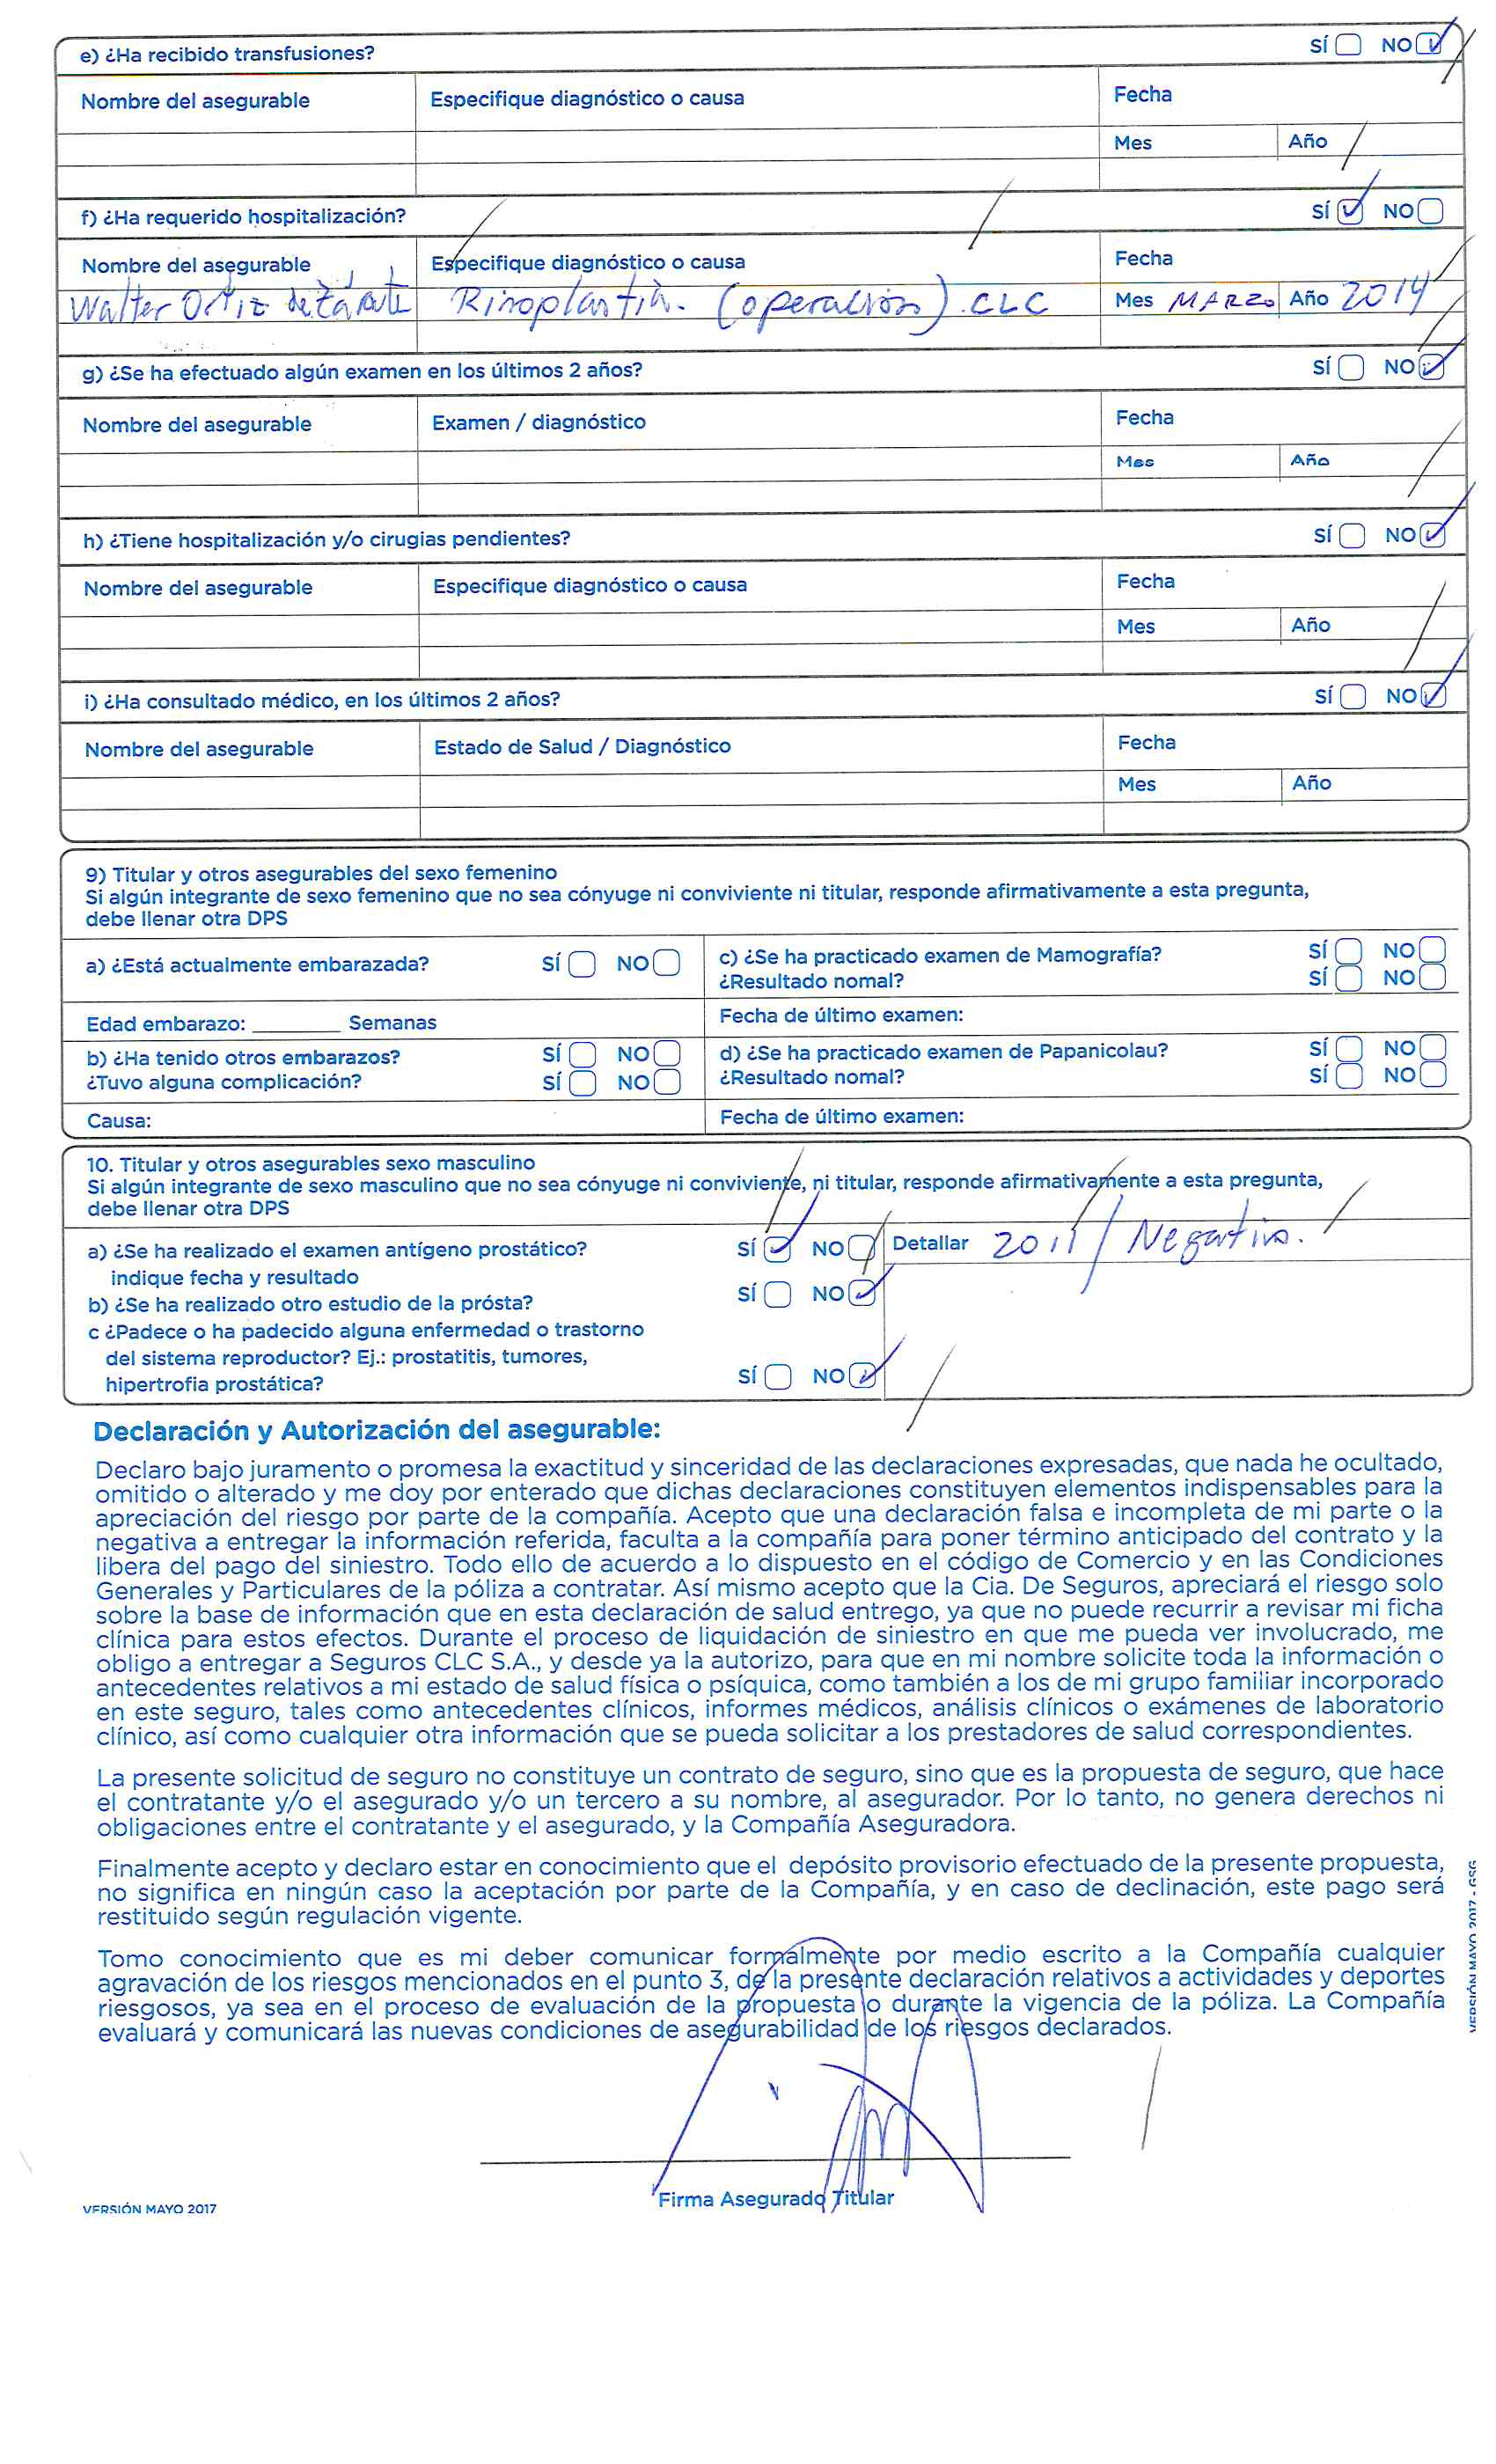 e) ¿Ha recibido transfusiones? SÍ NO
Nombre del asegurable Especifique diagnóstico o causa Fecha
Mes Año
f) ¿Ha requerido hospitalización? SÍ NO
Nombre del asegurable Especifique diagnóstico o causa Fecha
Walter Ortiz de Zárate Rinoplastia. (operación) CLC Mes MARZO Año 2014
g) ¿Se ha efectuado algún examen en los últimos 2 años? SÍ NO
Nombre del asegurable Examen / diagnóstico Fecha
Mes Año
h) ¿Tiene hospitalización y/o cirugias pendientes? SÍ NO
Nombre del asegurable Especifique diagnóstico o causa Fecha
Mes Año
i) ¿Ha consultado médico, en los últimos 2 años? SÍ NO
Nombre del asegurable Estado de Salud / Diagnóstico Fecha
Mes Año
9) Titular y otros asegurables del sexo femenino
Si algún integrante de sexo femenino que no sea cónyuge ni conviviente ni titular, responde afirmativamente a esta pregunta,
debe llenar otra DPS
a) ¿Está actualmente embarazada? SÍ NO
c) ¿Se ha practicado examen de Mamografía? SÍ NO
¿Resultado nomal? SÍ NO
Edad embarazo: ________ Semanas
Fecha de último examen:
b) ¿Ha tenido otros embarazos? SÍ NO
¿Tuvo alguna complicación? SÍ NO
d) ¿Se ha practicado examen de Papanicolau? SÍ NO
¿Resultado nomal? SÍ NO
Causa:
Fecha de último examen:
10. Titular y otros asegurables sexo masculino
Si algún integrante de sexo masculino que no sea cónyuge ni conviviente, ni titular, responde afirmativamente a esta pregunta,
debe llenar otra DPS
a) ¿Se ha realizado el examen antígeno prostático? SÍ NO Detallar 2011 / Negativo.
indique fecha y resultado
b) ¿Se ha realizado otro estudio de la prósta? SÍ NO
c ¿Padece o ha padecido alguna enfermedad o trastorno
del sistema reproductor? Ej.: prostatitis, tumores,
hipertrofia prostática? SÍ NO
Declaración y Autorización del asegurable:
Declaro bajo juramento o promesa la exactitud y sinceridad de las declaraciones expresadas, que nada he ocultado,
omitido o alterado y me doy por enterado que dichas declaraciones constituyen elementos indispensables para la
apreciación del riesgo por parte de la compañía. Acepto que una declaración falsa e incompleta de mi parte o la
negativa a entregar la información referida, faculta a la compañía para poner término anticipado del contrato y la
libera del pago del siniestro. Todo ello de acuerdo a lo dispuesto en el código de Comercio y en las Condiciones
Generales y Particulares de la póliza a contratar. Así mismo acepto que la Cia. De Seguros, apreciará el riesgo solo
sobre la base de información que en esta declaración de salud entrego, ya que no puede recurrir a revisar mi ficha
clínica para estos efectos. Durante el proceso de liquidación de siniestro en que me pueda ver involucrado, me
obligo a entregar a Seguros CLC S.A., y desde ya la autorizo, para que en mi nombre solicite toda la información o
antecedentes relativos a mi estado de salud física o psíquica, como también a los de mi grupo familiar incorporado
en este seguro, tales como antecedentes clínicos, informes médicos, análisis clínicos o exámenes de laboratorio
clínico, así como cualquier otra información que se pueda solicitar a los prestadores de salud correspondientes.
La presente solicitud de seguro no constituye un contrato de seguro, sino que es la propuesta de seguro, que hace
el contratante y/o el asegurado y/o un tercero a su nombre, al asegurador. Por lo tanto, no genera derechos ni
obligaciones entre el contratante y el asegurado, y la Compañía Aseguradora.
Finalmente acepto y declaro estar en conocimiento que el depósito provisorio efectuado de la presente propuesta,
no significa en ningún caso la aceptación por parte de la Compañía, y en caso de declinación, este pago será
restituido según regulación vigente.
Tomo conocimiento que es mi deber comunicar formalmente por medio escrito a la Compañía cualquier
agravación de los riesgos mencionados en el punto 3, de la presente declaración relativos a actividades y deportes
riesgosos, ya sea en el proceso de evaluación de la propuesta o durante la vigencia de la póliza. La Compañía
evaluará y comunicará las nuevas condiciones de asegurabilidad de los riesgos declarados.
Firma Asegurado Titular
VERSIÓN MAYO 2017
VERSIÓN MAYO 2017 - GSG